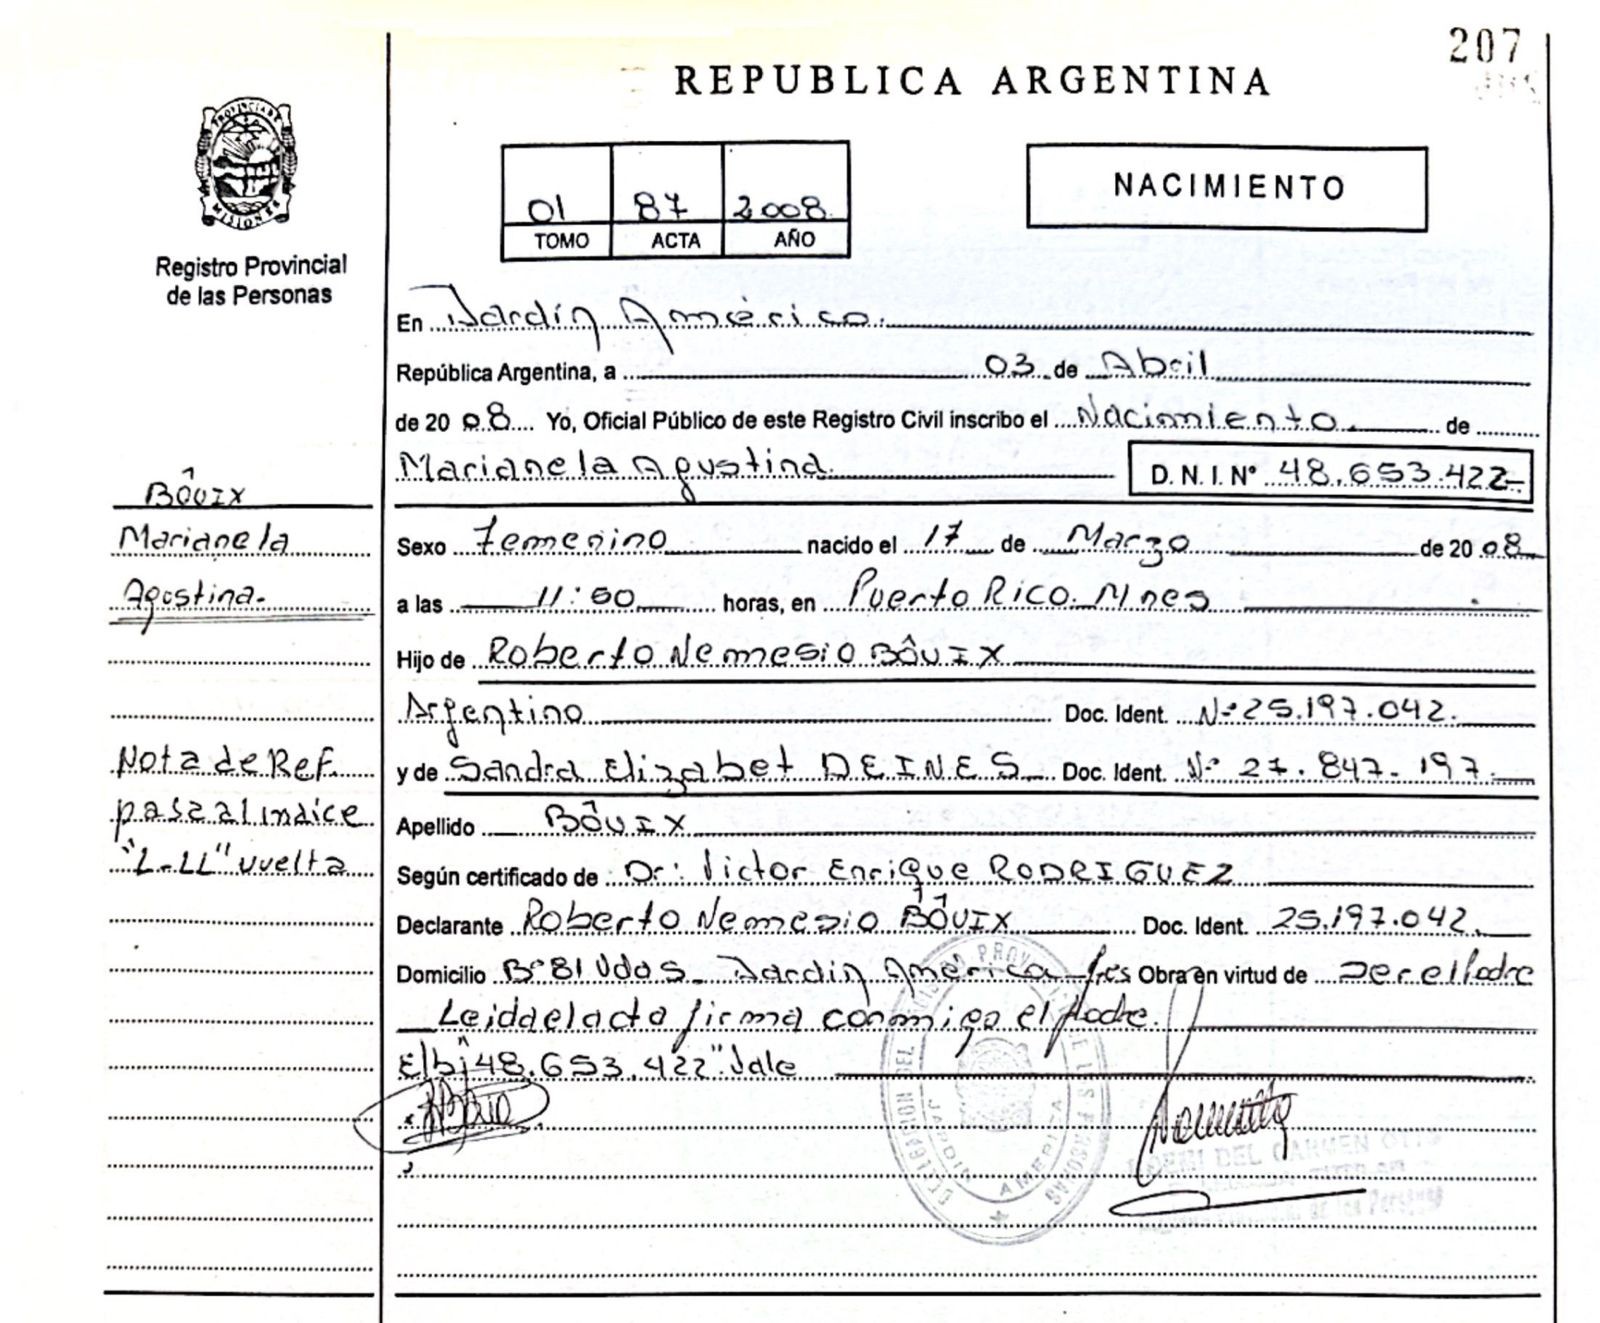 207
REPUBLICA ARGENTINA
PROVINCIA DE
MISIONES
Registro Provincial
de las Personas
01 87 2008
TOMO ACTA AÑO
NACIMIENTO
En Jardín América.
República Argentina, a 03 de Abril
de 2008 Yo, Oficial Público de este Registro Civil inscribo el Nacimiento de
Marianela Agustina. D. N. I. Nº 48.653.422
Sexo Femenino nacido el 17 de Marzo de 2008
a las 11:50 horas, en Puerto Rico. Mnes
Hijo de Roberto Nemesio BÔVIX
Argentino Doc. Ident. Nº 25.197.042.
y de Sandra Elizabet DEINES Doc. Ident. Nº 27.847.197.
Apellido BÔVIX
Según certificado de Dr: Victor Enrique RODRIGUEZ
Declarante Roberto Nemesio BÔVIX Doc. Ident. 25.197.042.
Domicilio Bº 81 Vdas. Jardín América Obra en virtud de ser el Padre
Leida el acta firma conmigo el Padre.
E/bj "48.653.422" Vale
BÔVIX
Marianela
Agostina.
Nota de Ref.
pasa al indice
"L-LL" vuelta
DELEGACION
JARDIN AMERICA
DEL CARMEN
de las Personas